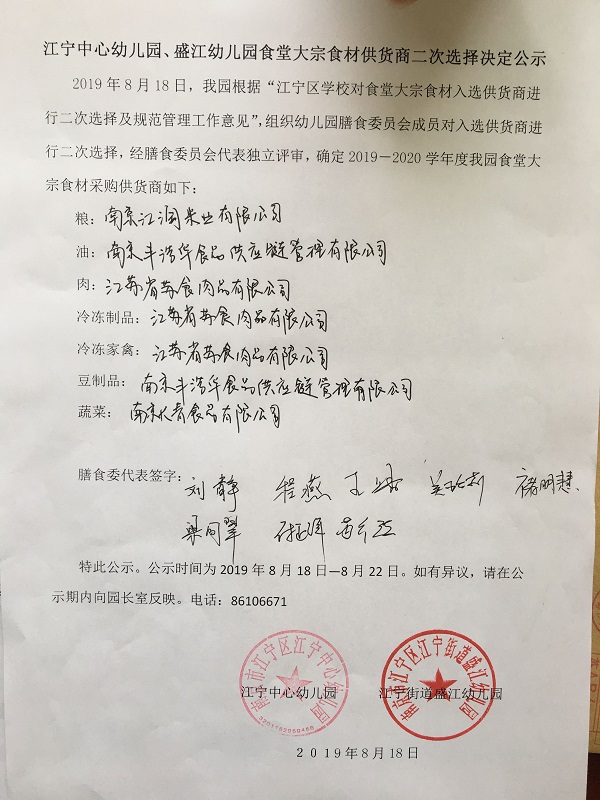 江宁中心幼儿园、盛江幼儿园食堂大宗食材供货商二次选择决定公示
2019年8月18日，我园根据“江宁区学校对食堂大宗食材入选供货商进
行二次选择及规范管理工作意见”，组织幼儿园膳食委员会成员对入选供货商进
行二次选择，经膳食委员会代表独立评审，确定2019－2020学年度我园食堂大
宗食材采购供货商如下：
粮：南京江润米业有限公司
油：南京丰浩华食品供应链管理有限公司
肉：江苏省苏食肉品有限公司
冷冻制品：江苏省苏食肉品有限公司
冷冻家禽：江苏省苏食肉品有限公司
豆制品：南京丰浩华食品供应链管理有限公司
蔬菜：南京食品有限公司
膳食委代表签字：刘静 程燕 褚明慧
梁同翠
特此公示。公示时间为2019年8月18日—8月22日。如有异议，请在公
示期内向园长室反映。电话：86106671
南京市江宁区江宁中心幼儿园
南京市江宁区江宁街道盛江幼儿园
江宁中心幼儿园 江宁街道盛江幼儿园
2019年8月18日